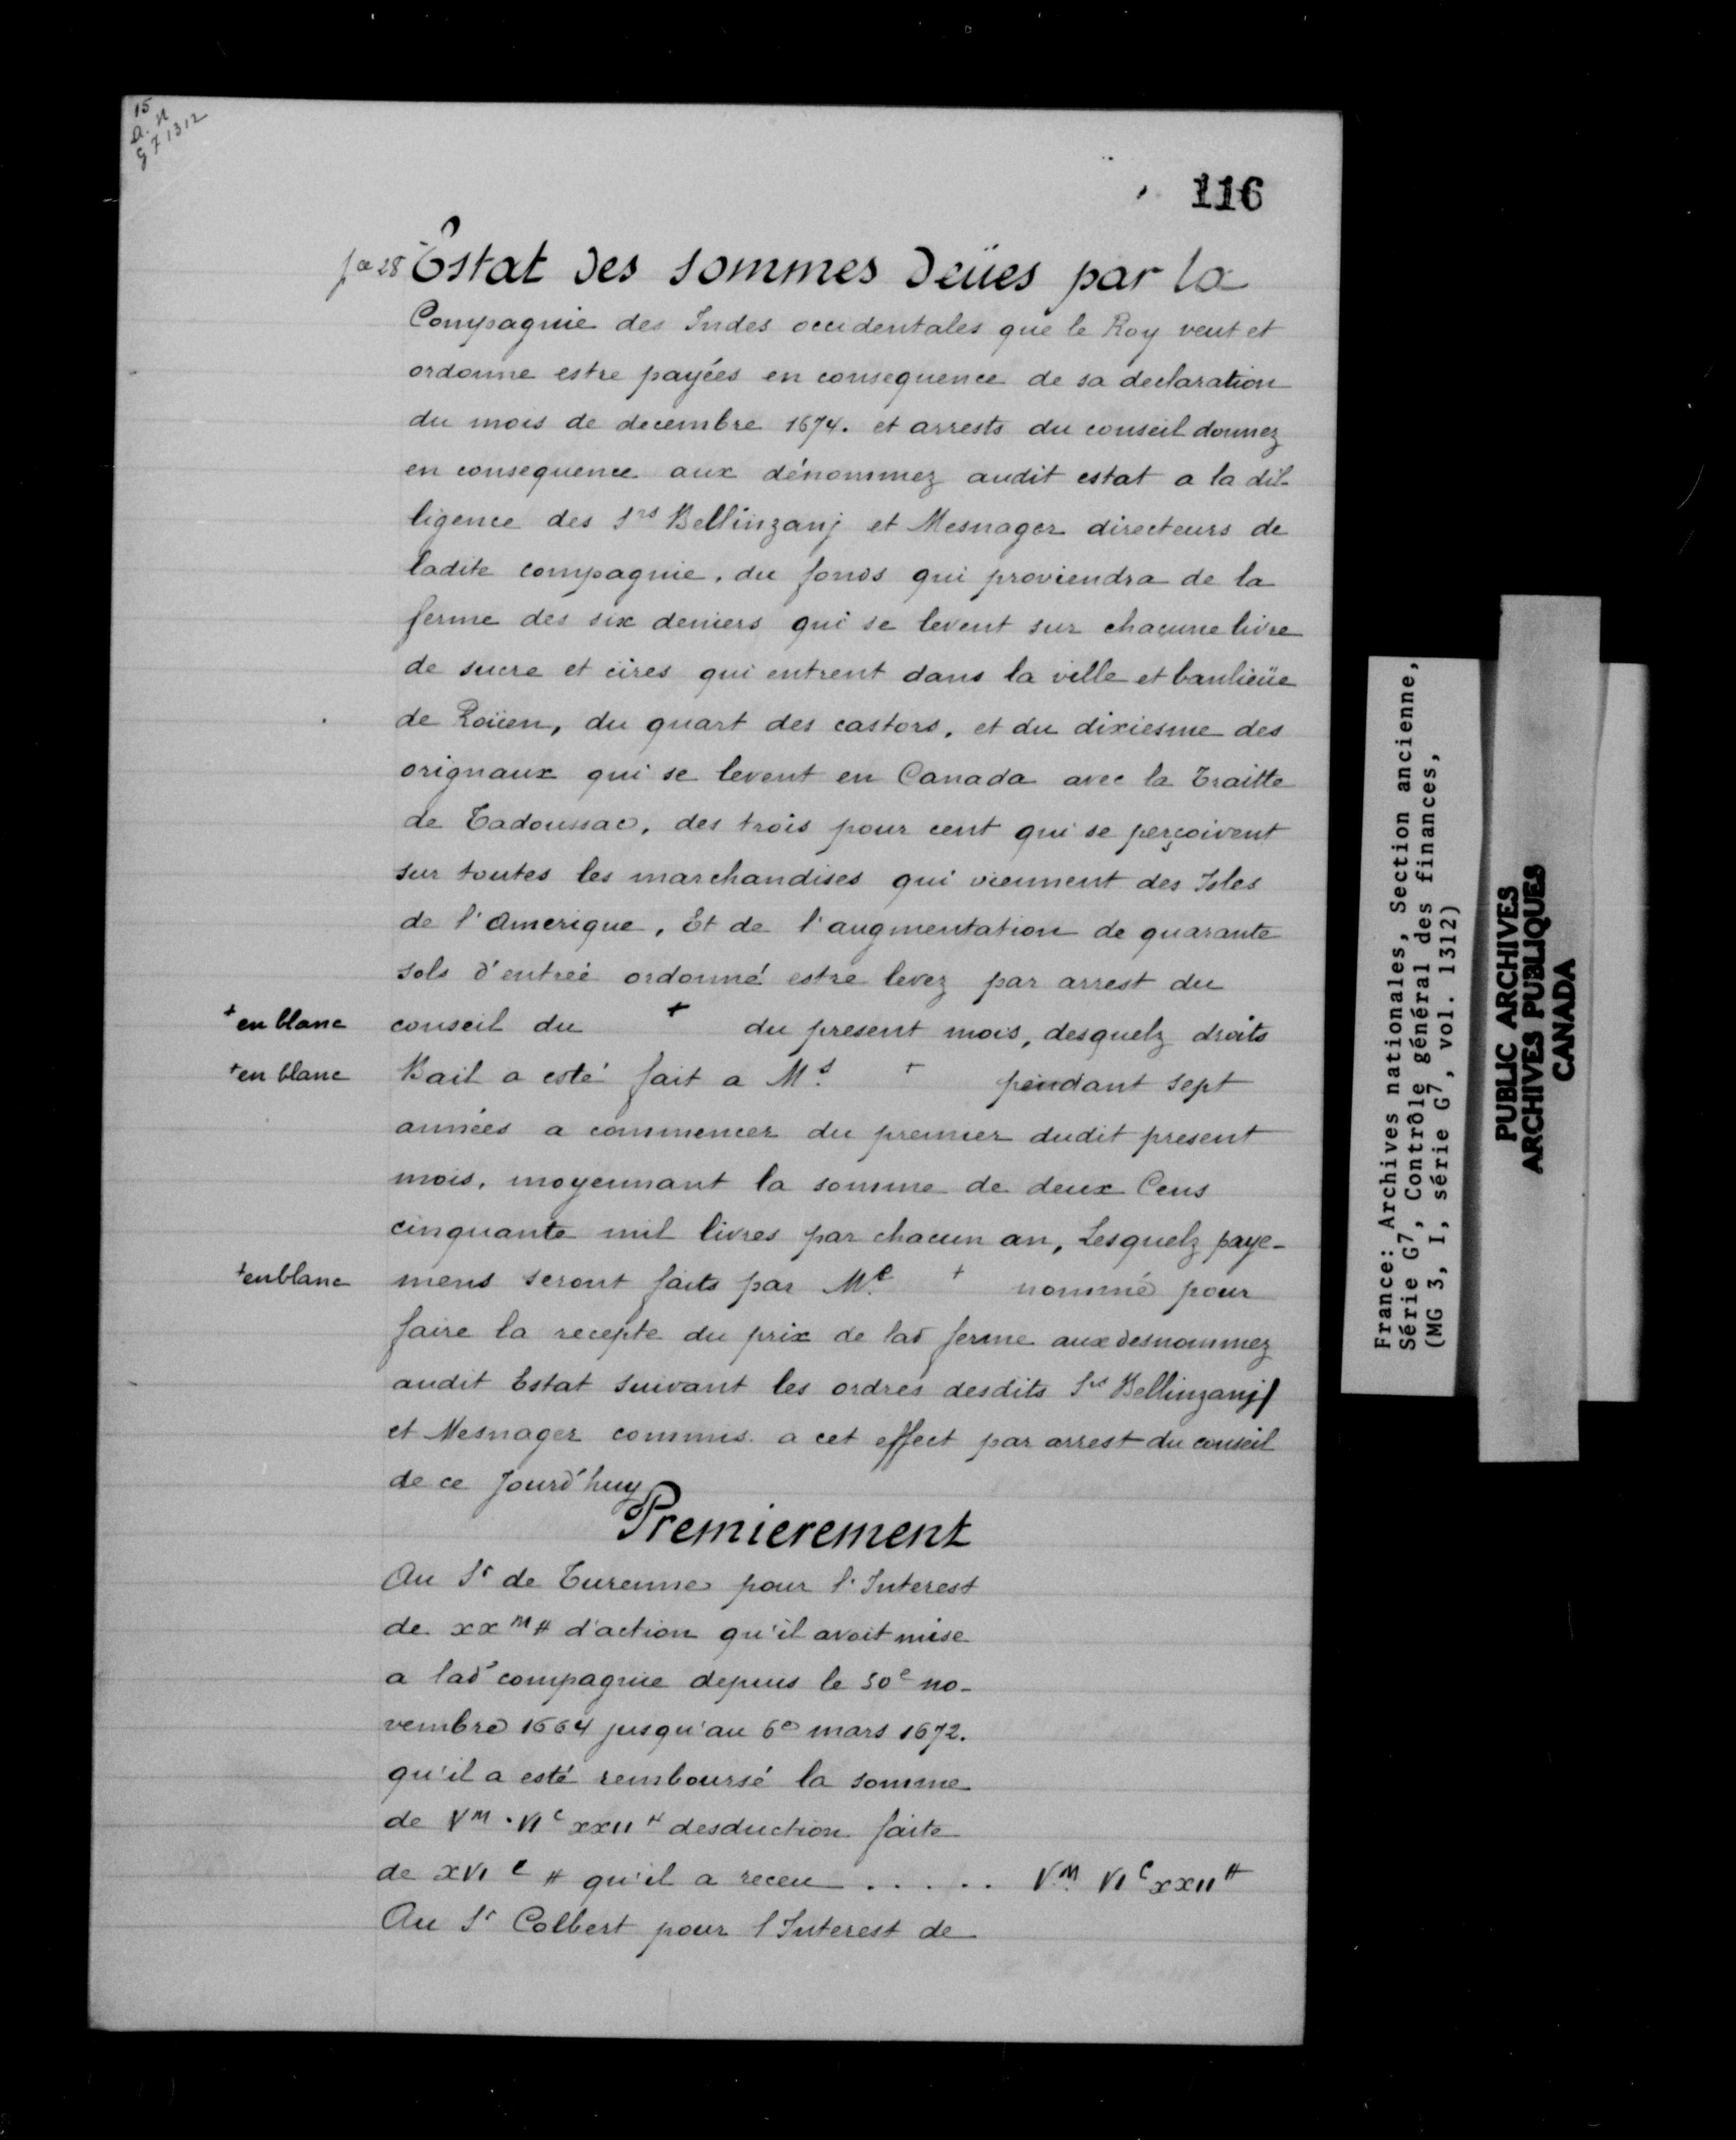 15
A. N
G 7 1312
116
fo 28 Estat des sommes deües par la
Compagnie des Indes occidentales que le Roy veut et
ordonne estre payées en consequence de sa declaration
du mois de decembre 1674. et arrests du conseil donnez
en consequence aux dénommez audit estat a la dil-
ligence des Srs Bellinzanj et Mesnager directeurs de
ladite compagnie, du fonds qui proviendra de la
ferme des six deniers qui se levent sur chacune livre
de sucre et cires qui entrent dans la ville et banlieüe
de Roüen, du quart des castors, et du dixiesme des
orignaux qui se levent en Canada avec la Traitte
de Tadoussac, des trois pour cent qui se perçoivent
sur toutes les marchandises qui viennent des Isles
de l'Amerique, Et de l'augmentation de quarante
sols d'entrée ordonné estre levez par arrest du
+ en blanc conseil du + du present mois, desquelz droits
+ en blanc Bail a esté fait a Ms. + pendant sept
années a commencer du premier dudit present
mois, moyennant la somme de deux Cens
cinquante mil livres par chacun an, Lesquelz paye-
+ en blanc mens seront faits par Me. + nommé pour
faire la recepte du prix de lad ferme aux desnommez
audit Estat suivant les ordres desdits Srs Bellinzanj
et Mesnager commis a cet effect par arrest du conseil
de ce Jourd'huy
Premierement
Au Sr de Turenne pour l'Interest
de xx M # d'action qu'il avoit mise
a lad compagnie depuis le 30e no-
vembre 1664 jusqu'au 6e mars 1672.
qu'il a esté remboursé la somme
de VM. VIC xxII # desduction faite
de xVI C # qu'il a receu ..... VM. VIC xxII #
Au Sr Colbert pour l'Interest de
France: Archives nationales, Section ancienne,
Série G7, Contrôle général des finances,
(MG 3, I, série G7, vol. 1312)
PUBLIC ARCHIVES
ARCHIVES PUBLIQUES
CANADA